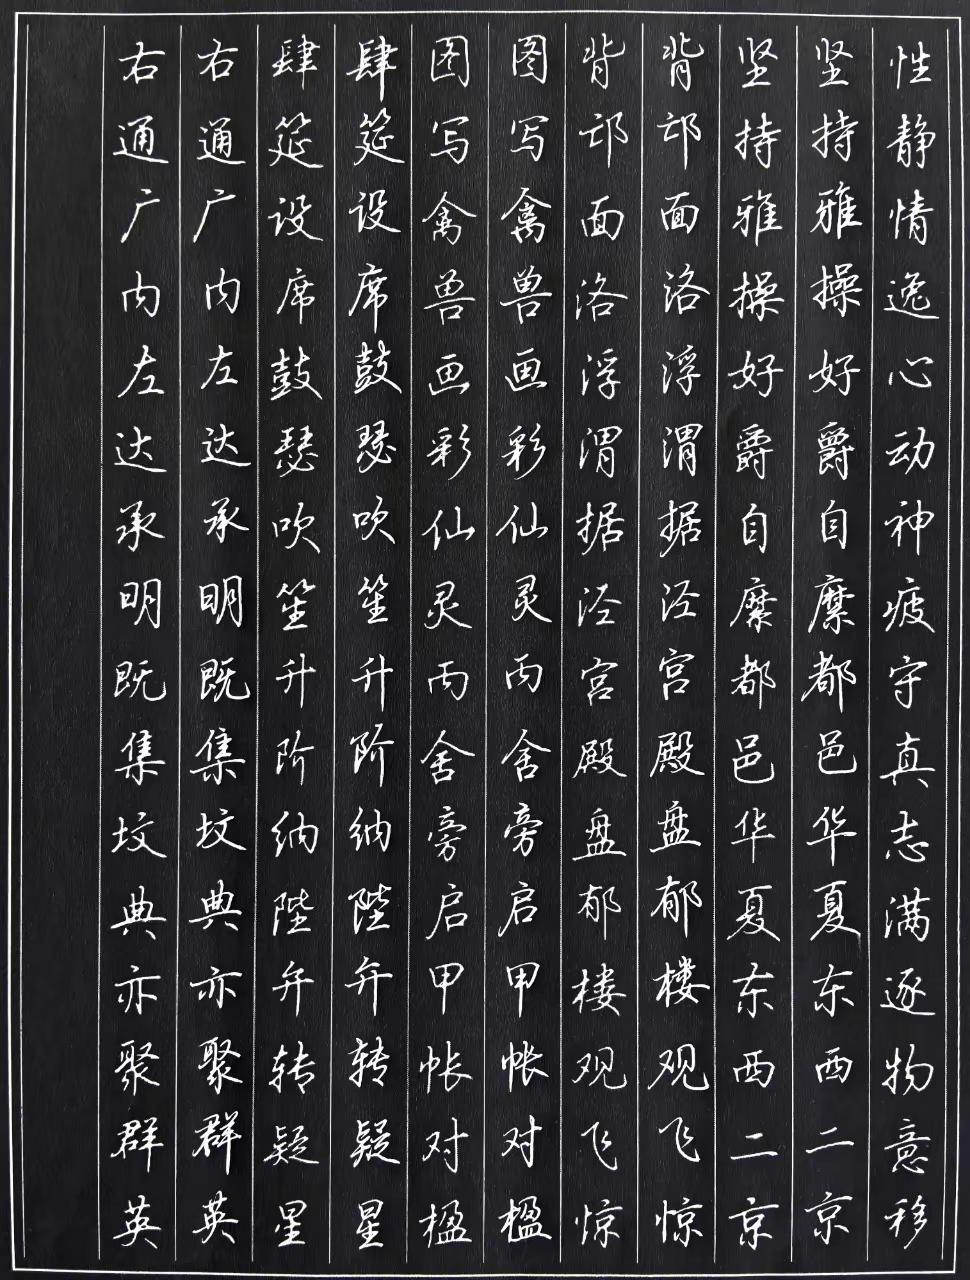 性静情逸心动神疲守真志满逐物意移
坚持雅操好爵自縻都邑华夏东西二京
坚持雅操好爵自縻都邑华夏东西二京
背邙面洛浮渭据泾宫殿盘郁楼观飞惊
背邙面洛浮渭据泾宫殿盘郁楼观飞惊
图写禽兽画彩仙灵丙舍旁启甲帐对楹
图写禽兽画彩仙灵丙舍旁启甲帐对楹
肆筵设席鼓瑟吹笙升阶纳陛弁转疑星
肆筵设席鼓瑟吹笙升阶纳陛弁转疑星
右通广内左达承明既集坟典亦聚群英
右通广内左达承明既集坟典亦聚群英